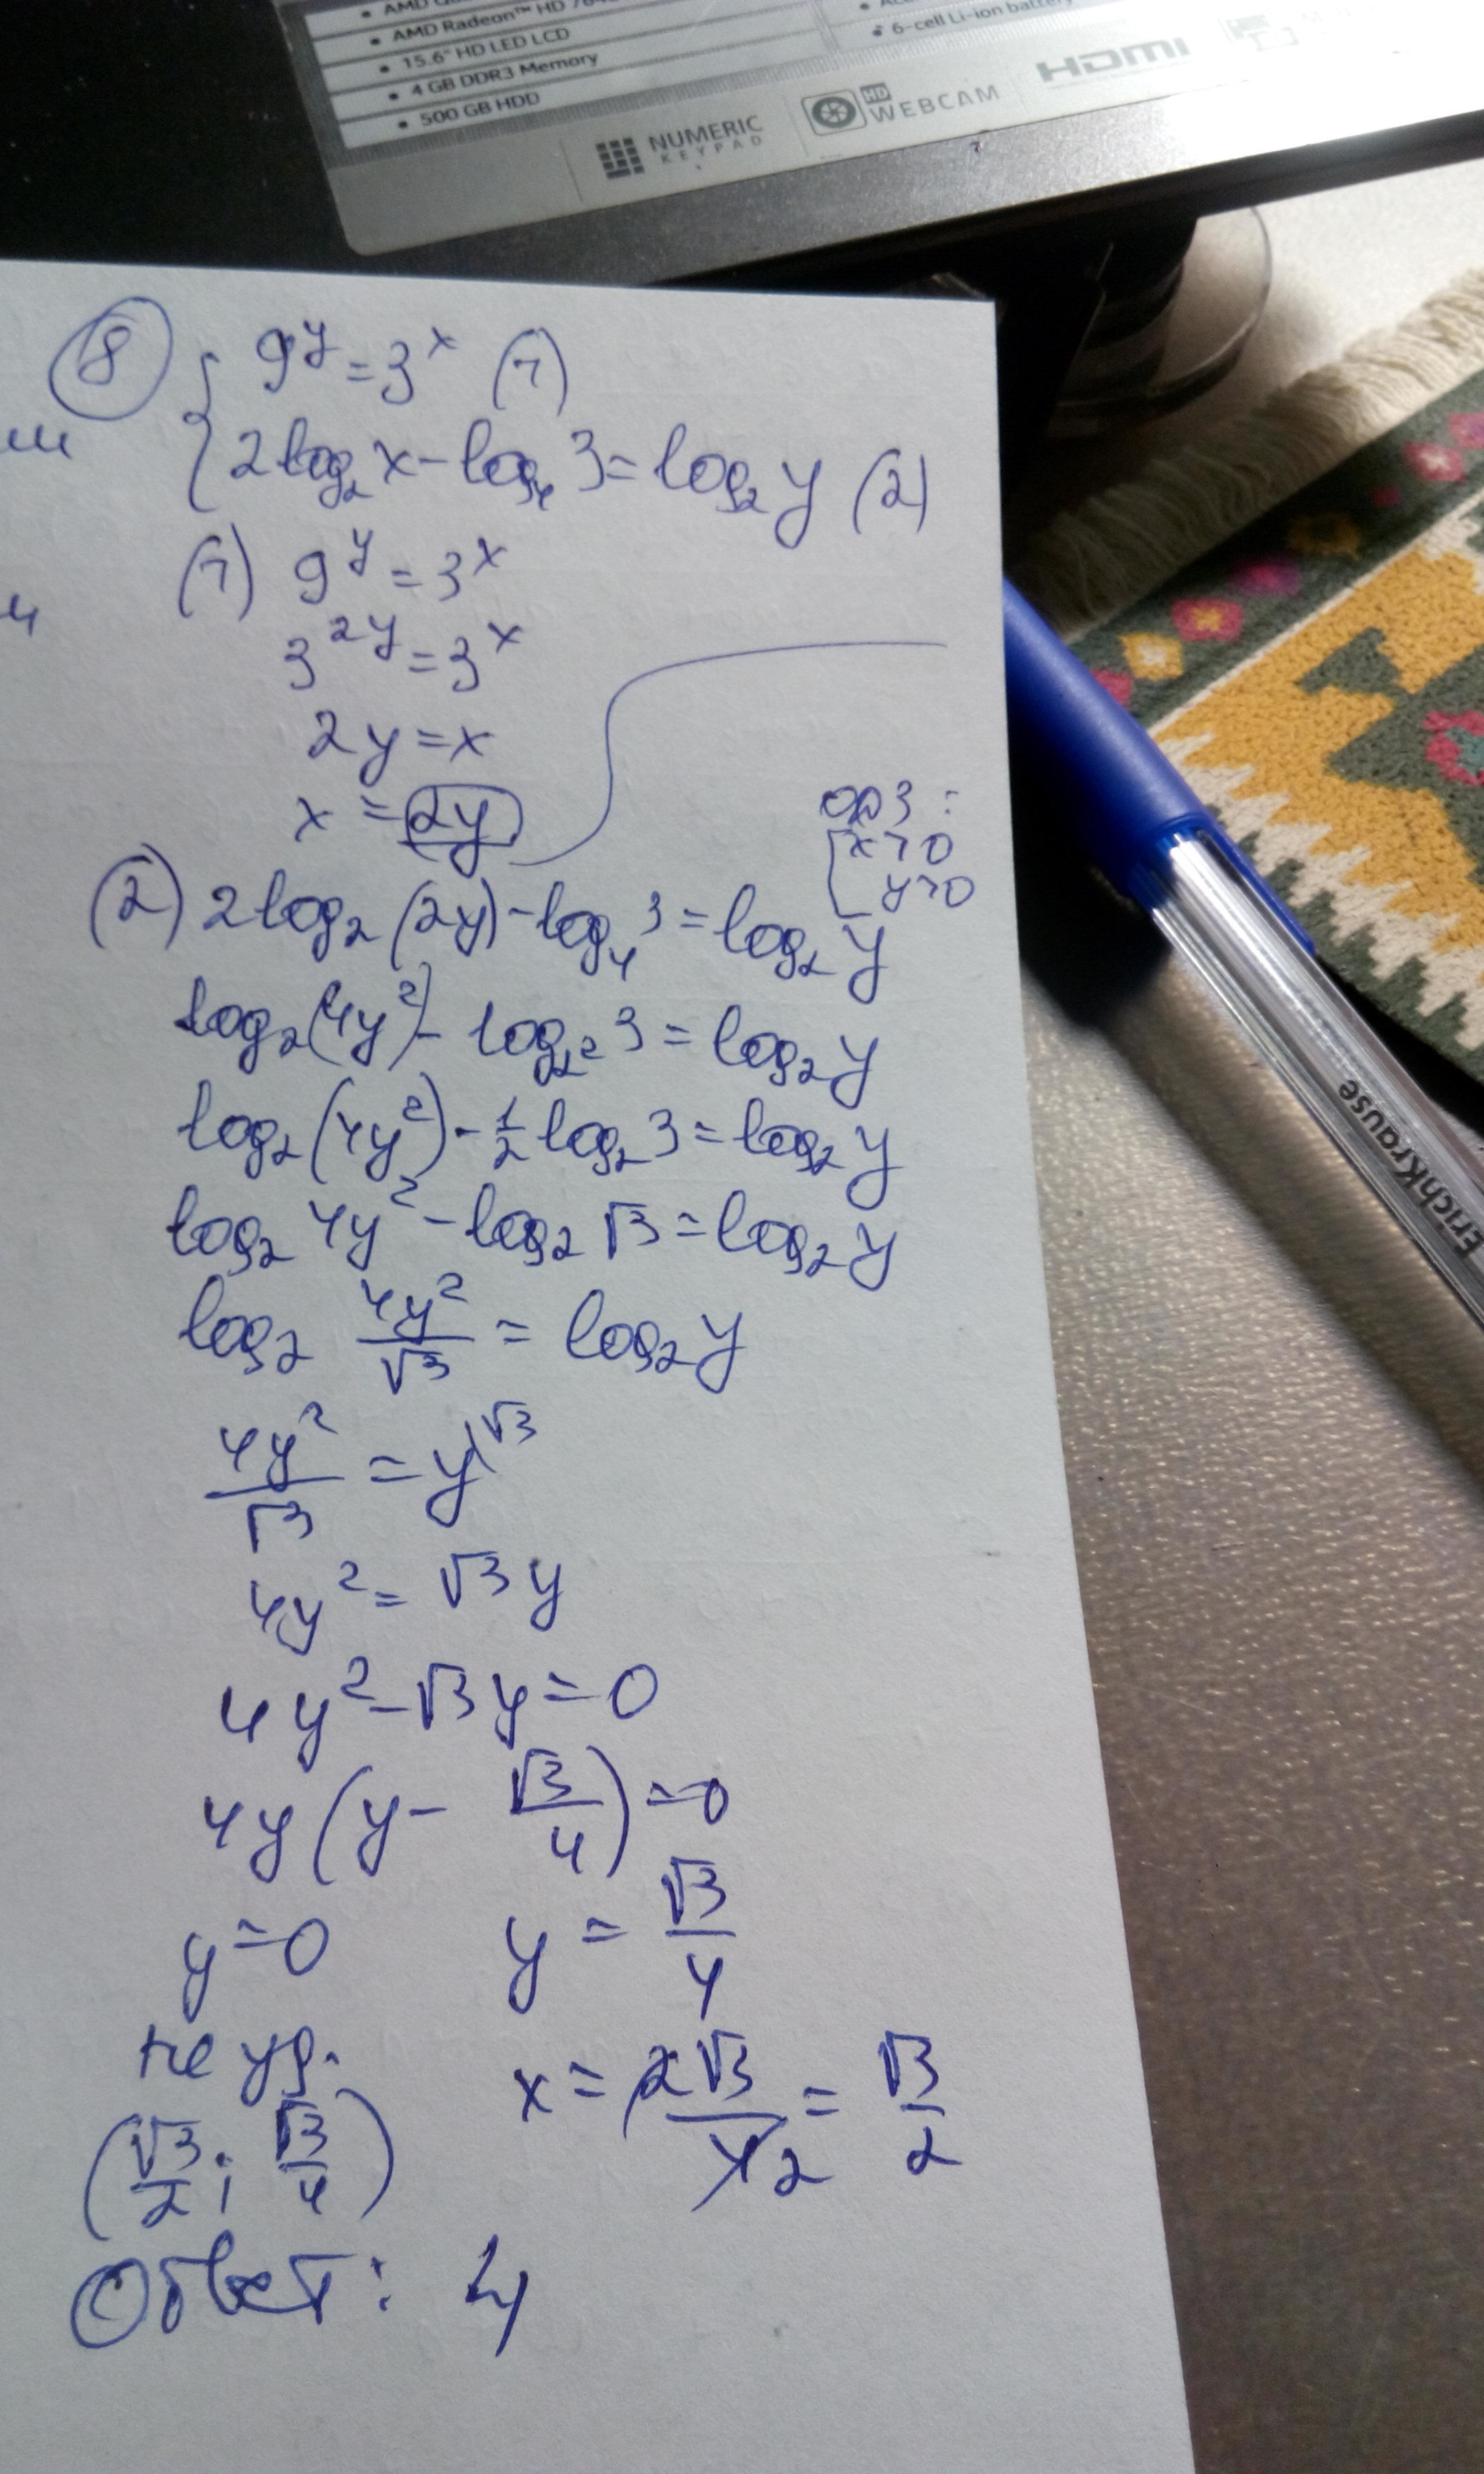 15.6" HD LED LCD
4 GB DDR3 Memory
500 GB HDD
AMD Radeon™ HD
6-cell Li-ion battery
NUMERIC
KEYPAD
HD
WEBCAM
HDMI
8
{ 9^y = 3^x (1)
{ 2log₂x - log₄3 = log₂y (2)
(1) 9^y = 3^x
3^2y = 3^x
2y = x
x = 2y
ОДЗ:
[x>0
y>0
(2) 2log₂(2y) - log₄3 = log₂y
log₂(4y²) - log₂²3 = log₂y
log₂(4y²) - 1/2 log₂3 = log₂y
log₂ 4y² - log₂ √3 = log₂y
log₂ 4y²/√3 = log₂y
4y²/√3 = y |√3
4y² = √3y
4y² - √3y = 0
4y(y - √3/4) = 0
y = 0 y = √3/4
не уд. x = 2√3/4 2 = √3/2
(√3/2; √3/4)
Ответ: 4
ErichKrause